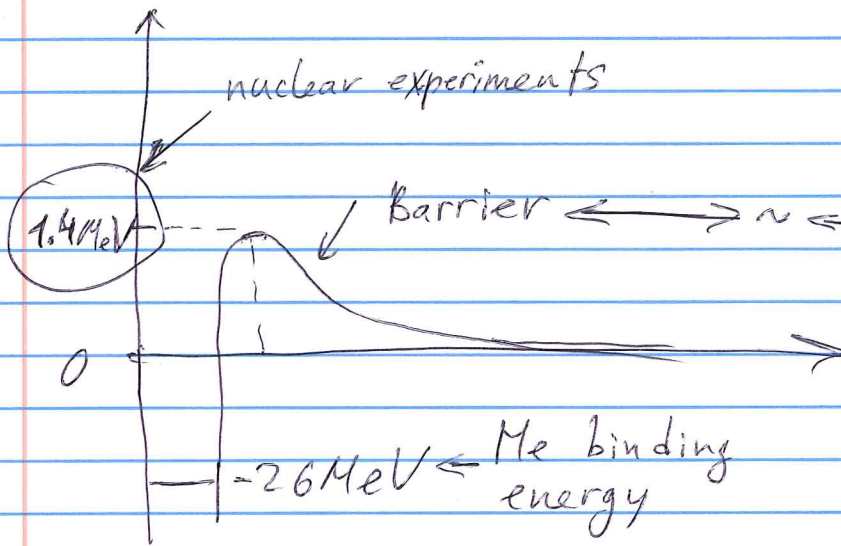 nuclear experiments
1.4 MeV
Barrier ↔ ~ ←
0
-26 MeV ← Me binding
energy